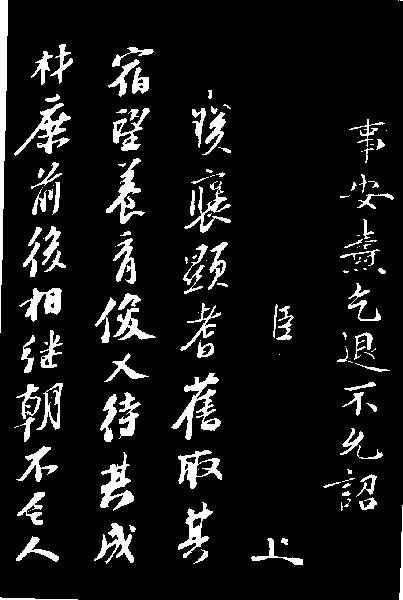 事安燾乞退不允詔
臣 上
朕襃顯耆舊取其
宿望養育俊乂待其成
材庶前後相继朝不乏人